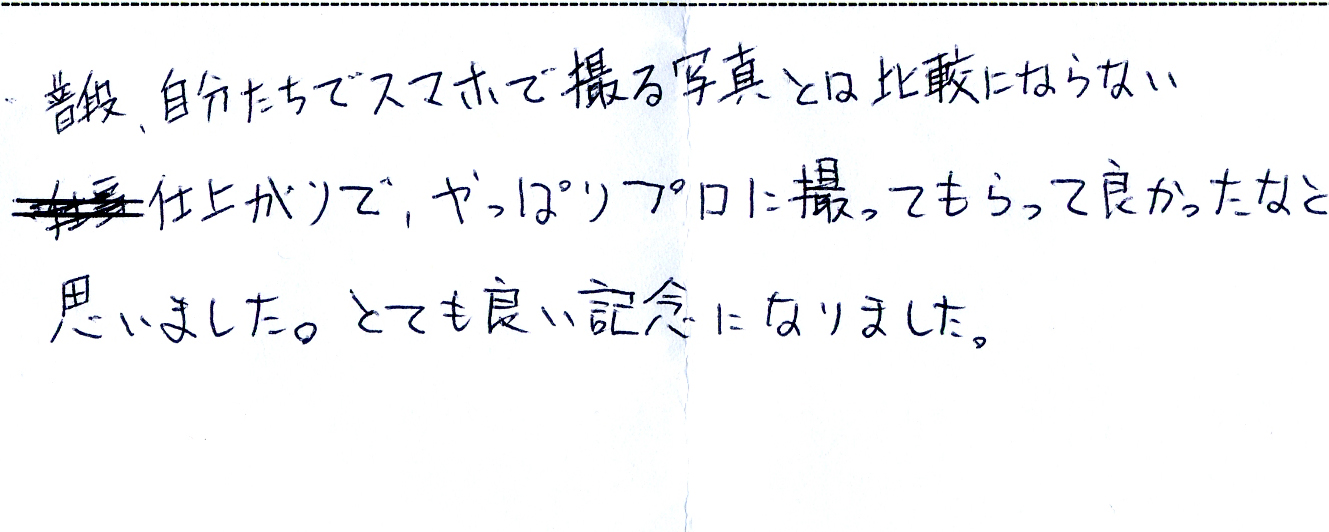 普段、自分たちでスマホで撮る写真とは比較にならない
仕上がりで、やっぱりプロに撮ってもらって良かったなと
思いました。とても良い記念になりました。